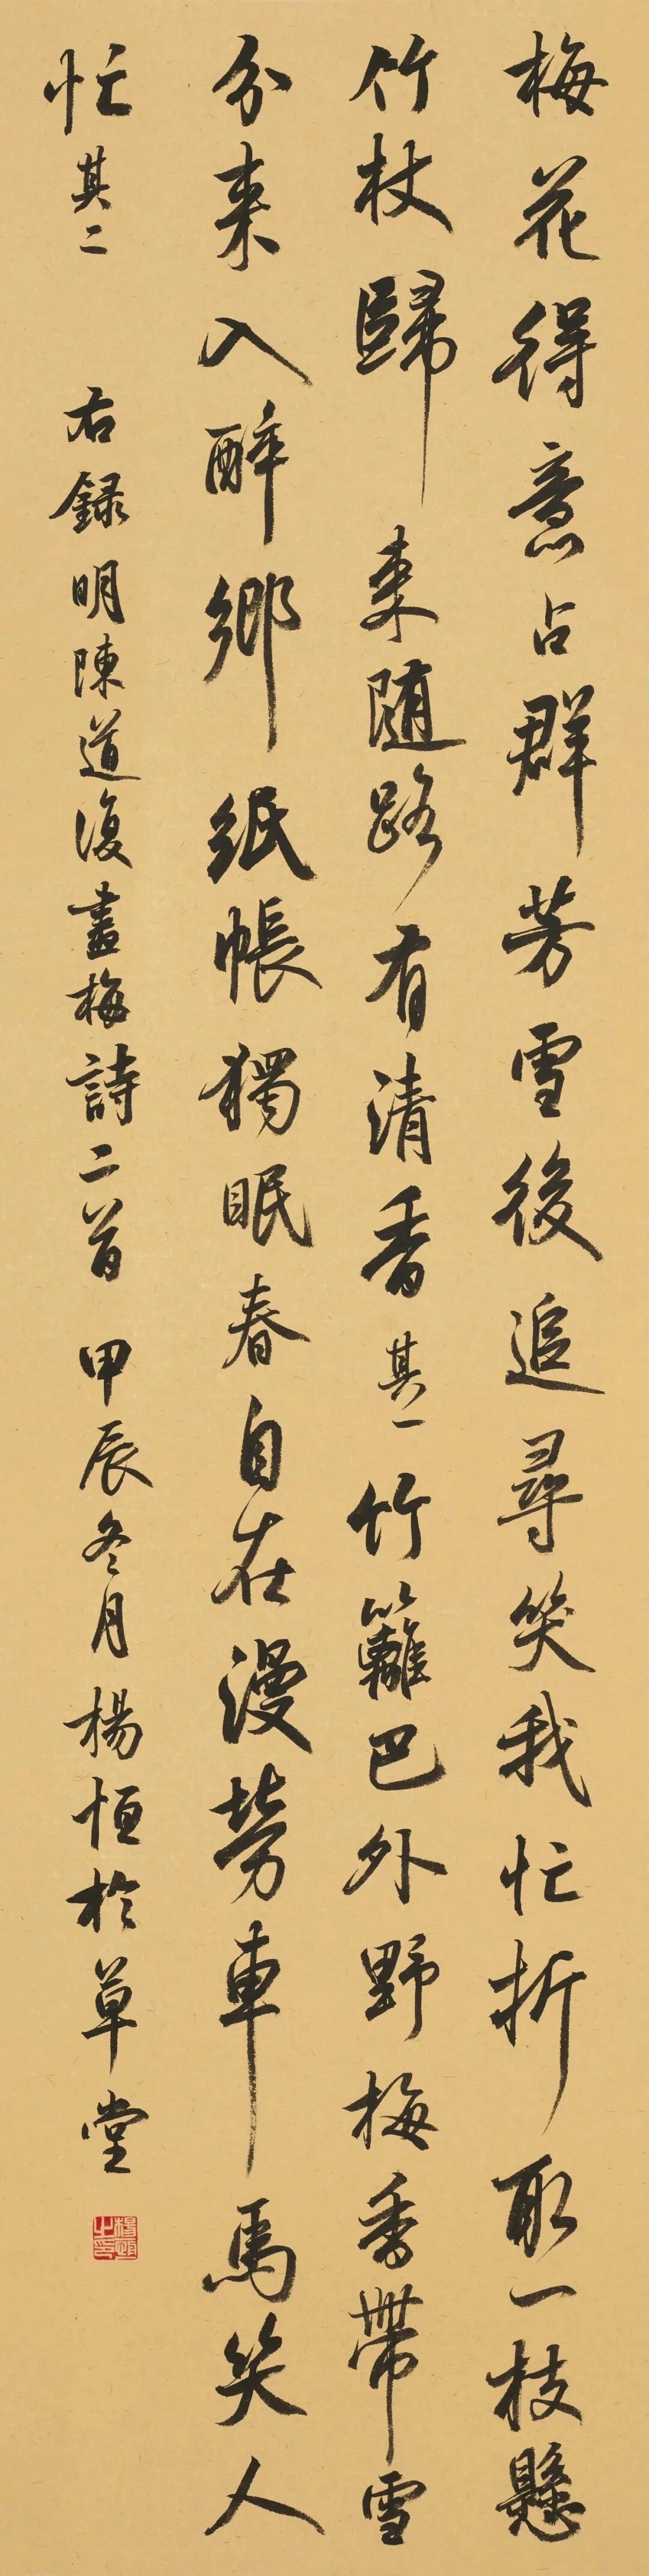 梅花得意占群芳雪後追尋笑我忙折取一枝懸
竹杖歸來随路有清香其一竹籬巴外野梅香帶雪
分來入醉鄉紙帳獨眠春自在漫勞車馬笑人
忙其二 右録明陳道復畫梅詩二首 甲辰冬月楊恒於草堂
楊恒之印